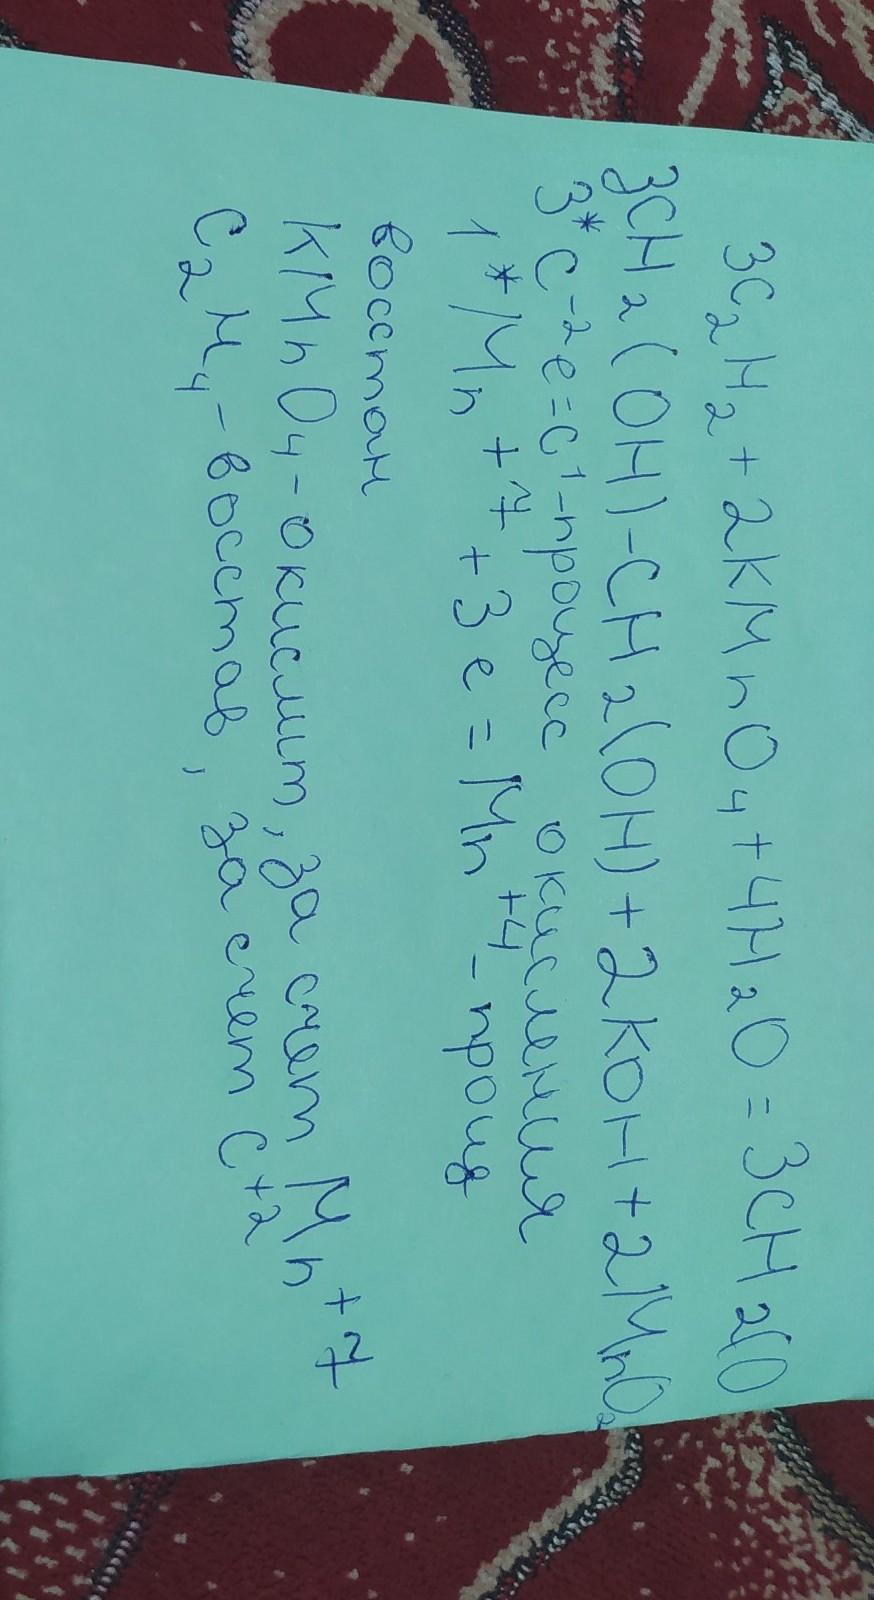 3C₂H₂ + 2KMnO₄ + 4H₂O = 3CH₂(O
3CH₂(OH)-CH₂(OH) + 2KOH + 2MnO₂
3* C⁻²e = C¹-процесс окисления
1* Mn⁺⁷ + 3e = Mn⁺⁴ - проц
восстан
KMnO₄ - окислит, за счет Mn⁺⁷
C₂H₄ - восстав, за счет C⁺²